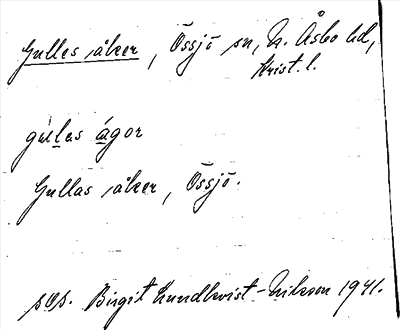 Gulles åker, Össjö sn, N. Åsbo hd,
Krist. l.
gullas ágor
Gullas åker, Össjö.
Birgit Lundkvist-Nilsson 1941.